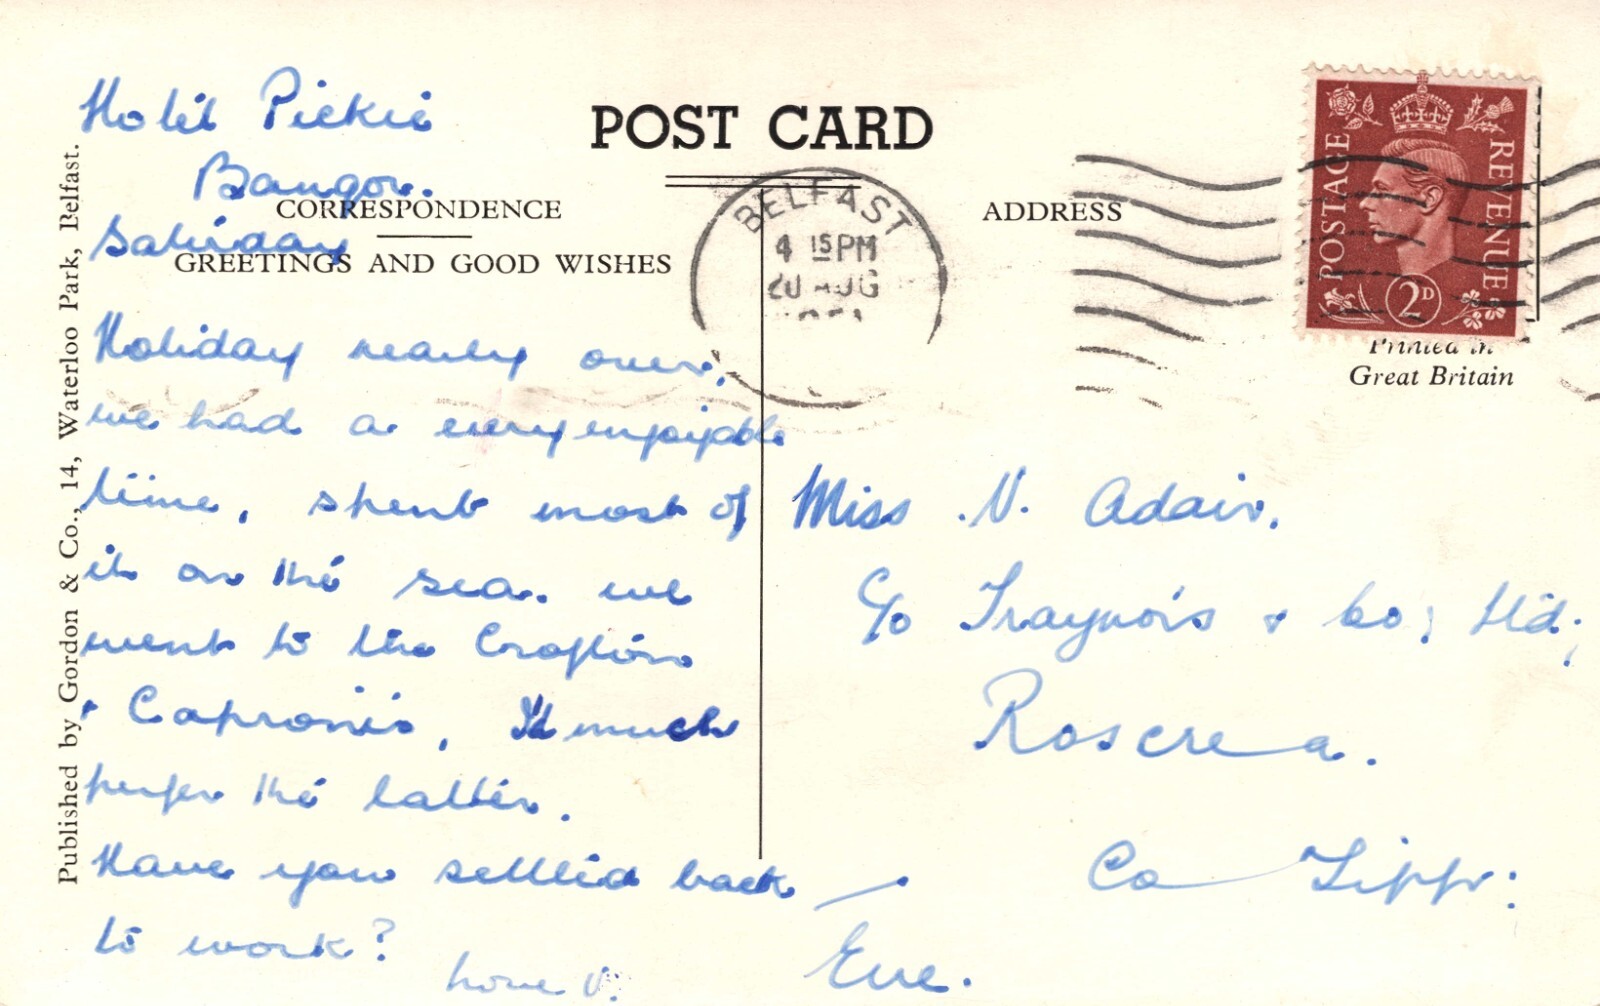 Hotel Pickie
Bangor.
Saturday
POST CARD
CORRESPONDENCE
GREETINGS AND GOOD WISHES
ADDRESS
Published by Gordon & Co., 14, Waterloo Park, Belfast.
BELFAST
4 15 PM
20 AUG
POSTAGE
REVENUE
2D
Printed in
Great Britain
Holiday nearly over,
we had a very enjoyable
time, spent most of
it on the sea. We
went to the Crofton
& Caproni's, I much
prefer the latter.
Have you settled back
to work?
Eve.
Miss V. Adair.
C/o Traynor's & Co; Ltd;
Roscrea.
Co Tipp: